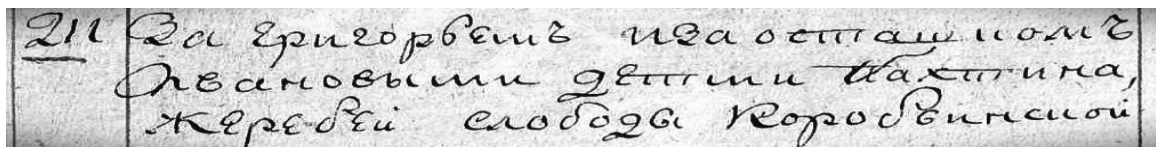 211 За григорьемъ иза осташкомъ
Ивановыми детми
жеребей слободы Коробьинской